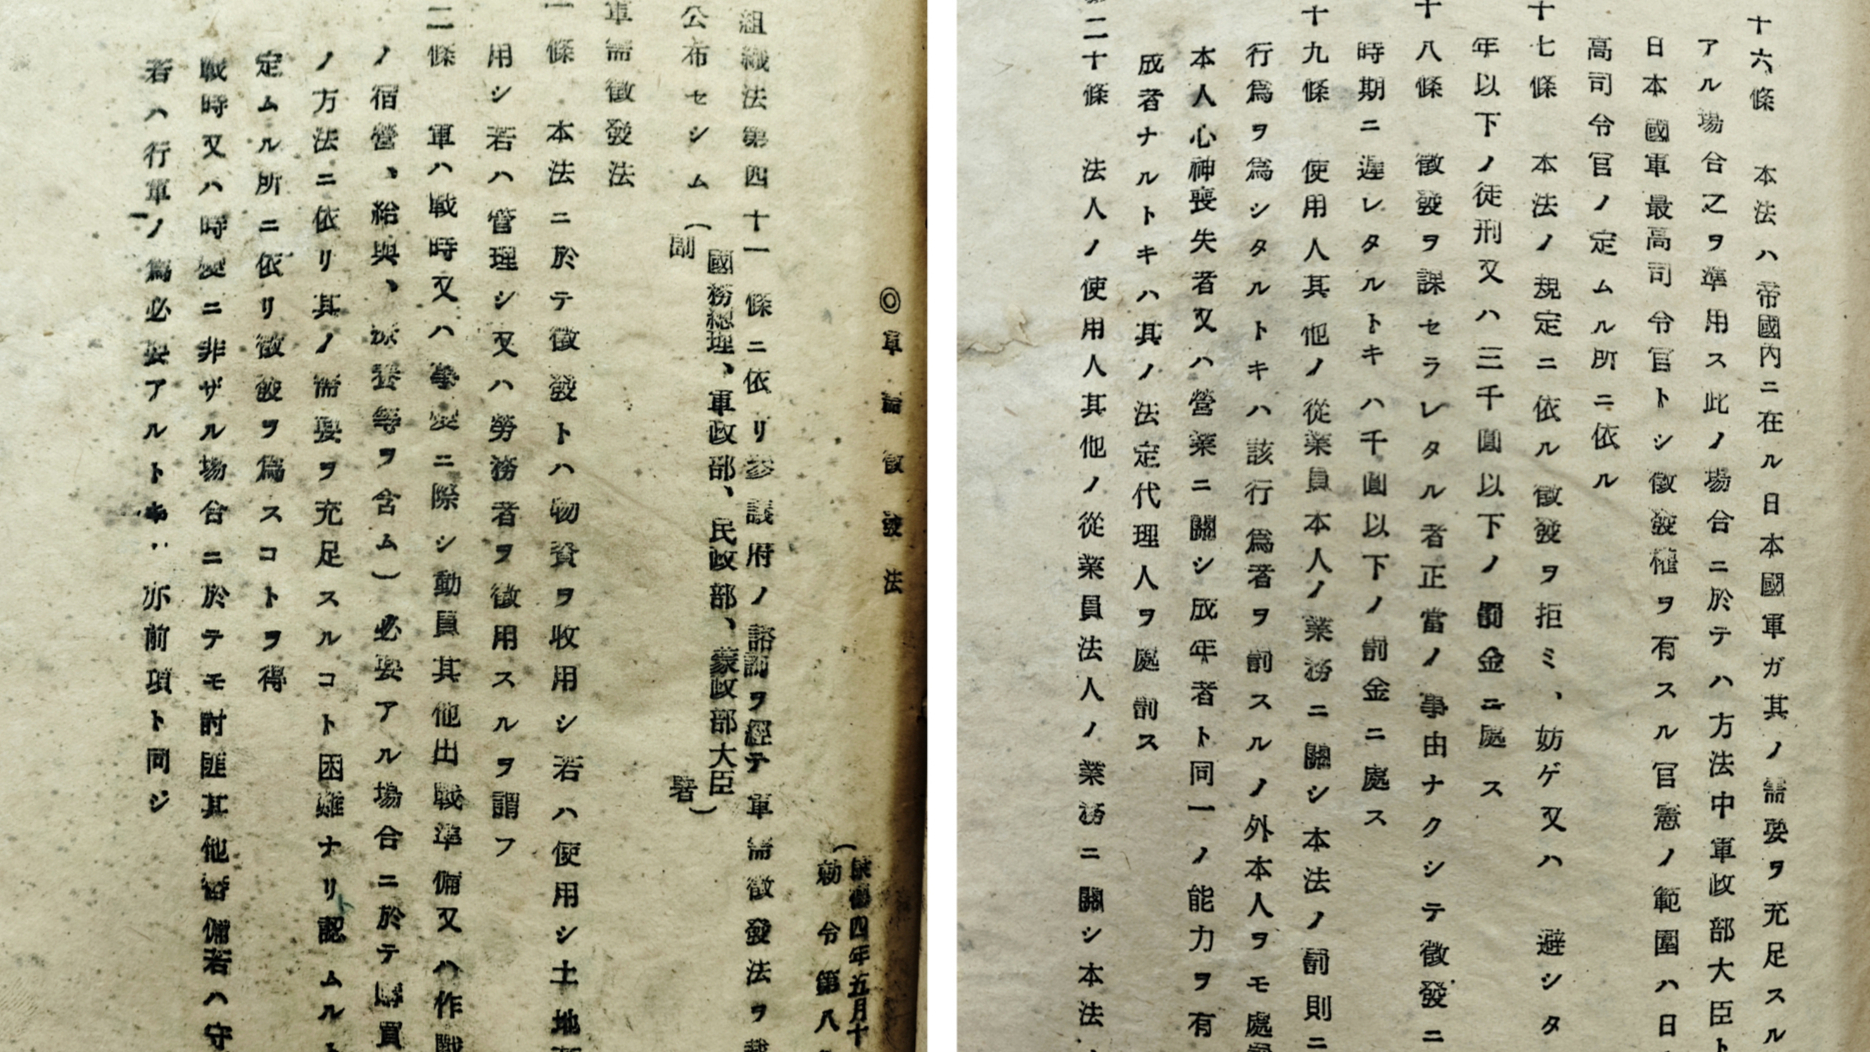 ◎軍需徵發法
康德四年五月十
勅令第八
組織法第四十一條ニ依リ參議府ノ諮詢ヲ經テ軍需徵發法ヲ裁
公布セシム
(副署)
國務總理、軍政部、民政部、蒙政部大臣
軍需徵發法
一條 本法ニ於テ徵發トハ物資ヲ收用シ若ハ使用シ土地
用シ若ハ管理シ又ハ勞務者ヲ徵用スルヲ謂フ
二條 軍ハ戰時又ハ事變ニ際シ動員其他出戰準備又ハ作戰
ノ宿營、給與、療養等ヲ含ム)必要アル場合ニ於テ購買
ノ方法ニ依リ其ノ需要ヲ充足スルコト困難ナリ認ムルト
定ムル所ニ依リ徵發ヲ爲スコトヲ得
戰時又ハ時變ニ非ザル場合ニ於テモ討匪其他警備若ハ守
若ハ行軍ノ爲必要アルトキ亦前項ト同ジ
十六條 本法ハ帝國內ニ在ル日本國軍ガ其ノ需要ヲ充足スル
アル場合之ヲ準用ス此ノ場合ニ於テハ方法中軍政部大臣ト
日本國軍最高司令官トシ徵發權ヲ有スル官憲ノ範圍ハ日
高司令官ノ定ムル所ニ依ル
十七條 本法ノ規定ニ依ル徵發ヲ拒ミ、妨ゲ又ハ 避シタ
年以下ノ徒刑又ハ三千圓以下ノ罰金ニ處ス
十八條 徵發ヲ課セラレタル者正當ノ事由ナクシテ徵發ニ
時期ニ遲レタルトキハ千圓以下ノ罰金ニ處ス
十九條 使用人其他ノ從業員本人ノ業務ニ關シ本法ノ罰則ニ
行爲ヲ爲シタルトキハ該行爲者ヲ罰スルノ外本人ヲモ處罰
本人心神喪失者又ハ營業ニ關シ成年者ト同一ノ能力ヲ有
成者ナルトキハ其ノ法定代理人ヲ處罰ス
第二十條 法人ノ使用人其他ノ從業員法人ノ業務ニ關シ本法